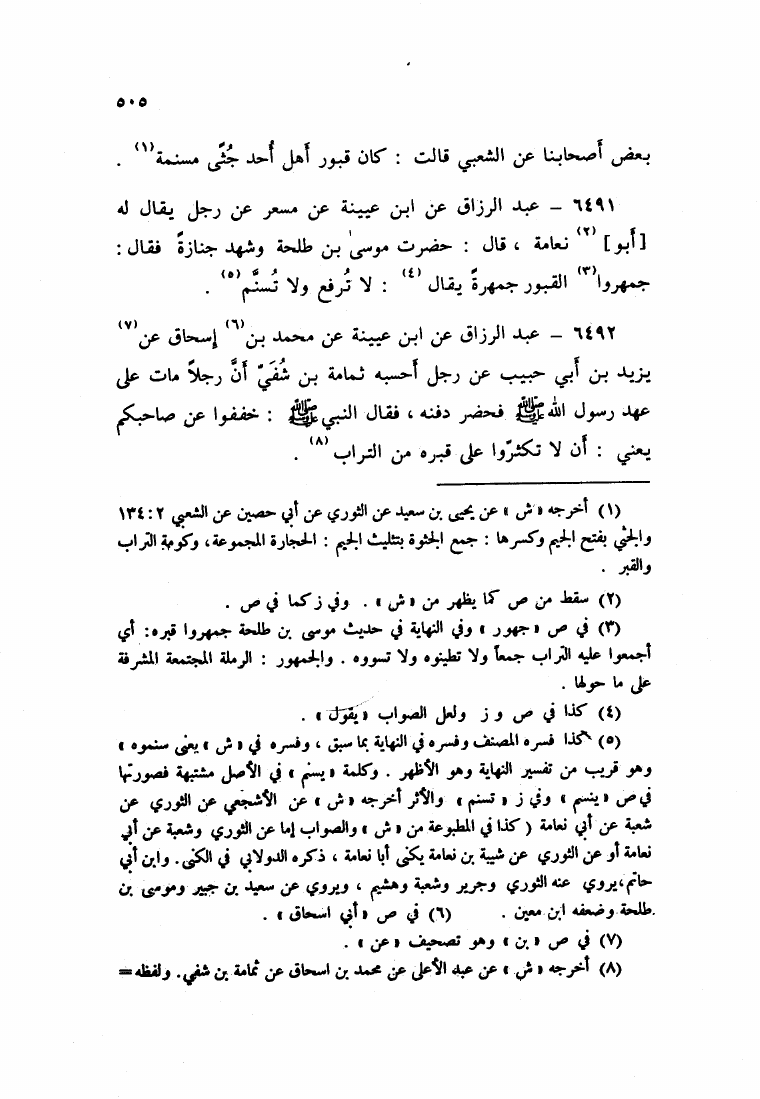 ٥٠٥
بعض أَصحابنا عن الشعبي قالت : كان قبور أَهل أُحد جُثًى مسنمة(١) .
٦٤٩١ – عبد الرزاق عن ابن عيينة عن مسعر عن رجل يقال له
[أَبو](٢) نعامة ، قال : حضرت موسىٰ بن طلحة وشهد جنازةً فقال :
جمهروا(٣) القبور جمهرةً يقال(٤) : لا تُرفع ولا تُسنَّم(٥) .
٦٤٩٢ – عبد الرزاق عن ابن عيينة عن محمد بن(٦) إسحاق عن(٧)
يزيد بن أَبي حبيب عن رجل أَحسبه ثمامة بن شُفَيّ أَنَّ رجلاً مات على
عهد رسول الله ﷺ فحضر دفنه ، فقال النبي ﷺ : خففوا عن صاحبكم
يعني : أَن لا تكثرّوا على قبره من التراب(٨) .
(١) أخرجه «ش» عن يحيى بن سعيد عن الثوري عن أبي حصين عن الشعبي ٢: ١٣٤
والجثي بفتح الجيم وكسرها : جمع الجثوة بتثليث الجيم : الحجارة المجموعة ، وكومة التراب
والقبر .
(٢) سقط من ص كما يظهر من «ش» . وفي ز كما في ص .
(٣) في ص «جهور» وفي النهاية في حديث موسى بن طلحة جمهروا قبره: أي
أجمعوا عليه التراب جمعاً ولا تطينوه ولا تسووه . والجمهور : الرملة المجتمعة المشرفة
على ما حولها .
(٤) كذا في ص و ز ولعل الصواب «يقول» .
(٥) كذا فسره المصنف وفسره في النهاية بما سبق ، وفسره في «ش» يعنى سنموه»
وهو قريب من تفسير النهاية وهو الأظهر . وكلمة «يسنم» في الأصل مشتبهة فصورتها
في ص «ينسم» وفي ز «تسنم» والأثر أخرجه «ش» عن الأشجعي عن الثوري عن
شعبة عن أبي نعامة ( كذا في المطبوعة من «ش» والصواب إما عن الثوري وشعبة عن أبي
نعامة أو عن الثوري عن شيبة بن نعامة يكنى أبا نعامة ، ذكره الدولابي في الكنى. وابن أبي
حاتم ، يروي عنه الثوري وجرير وشعبة وهشيم ، ويروي عن سعيد بن جبير وموسى بن
طلحة وضعفه ابن معين . (٦) في ص «أبي اسحاق» .
(٧) في ص «بن» وهو تصحيف «عن» .
(٨) أخرجه «ش» عن عبد الأعلى عن محمد بن اسحاق عن ثمامة بن شفي. ولفظه=